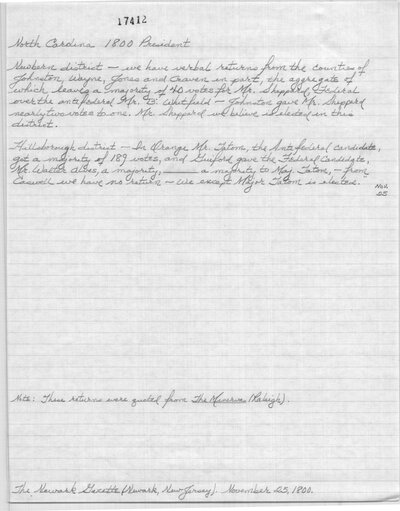 17412
North Carolina 1800 President
Newbern district — we have verbal returns from the counties of
Johnston, Wayne, Jones and Craven in part, the aggregate of
which leaves a majority of 40 votes for Mr. Sheppard, Federal
over the antifederal Mr. B. Whitfield — Johnston gave Mr. Sheppard
nearly two votes to one. Mr. Sheppard we believe is elected in this
district.
Hillsborough district — In Orange Mr. Tatom, the Antifederal candidate,
got a majority of 189 votes, and Guilford gave the Federal Candidate,
Mr. Walter Alves, a majority, ______ a majority to Maj Tatom, — from
Caswell we have no return — We except Major Tatom is elected.
Nov.
25
Note: These returns were quoted from The Minerva (Raleigh).
The Newark Gazette (Newark, New Jersey). November 25, 1800.